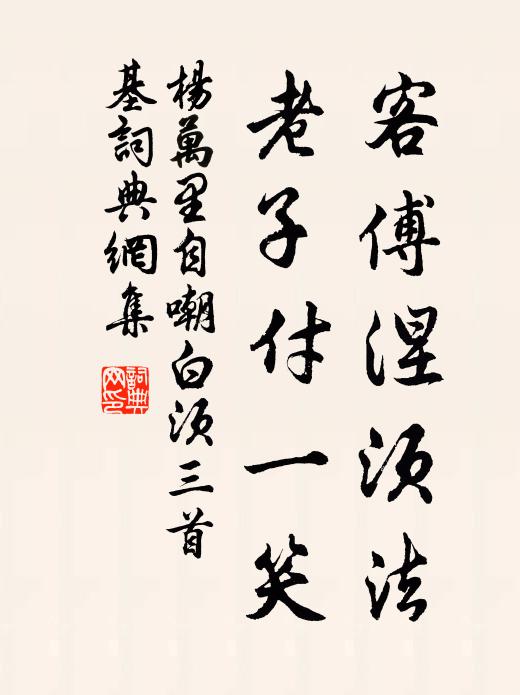 客傅涅须法
老子付一笑
楊萬里自嘲白须三首
基詞典網集
詞典網印